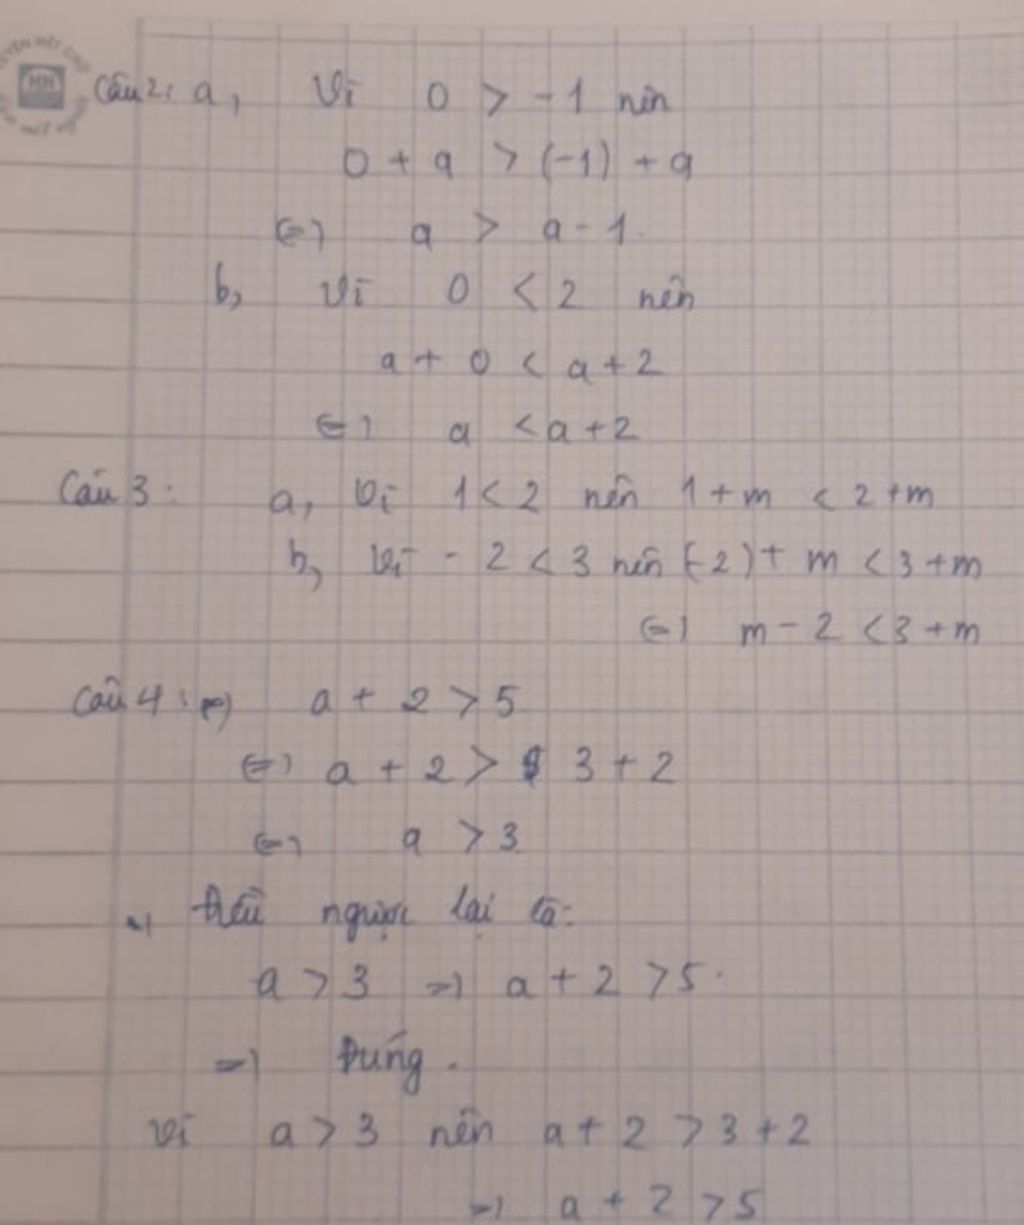 Câu 2: a, Vì 0 > -1 nên
0 + a > (-1) + a
(=) a > a - 1.
b, Vì 0 < 2 nên
a + 0 < a + 2
(=) a < a + 2
Câu 3: a, Vì 1 < 2 nên 1 + m < 2 + m
b, Vì - 2 < 3 nên (-2) + m < 3 + m
(=) m - 2 < 3 + m
Câu 4: a + 2 > 5
(=) a + 2 > 3 + 2
(=) a > 3
=) Điều ngược lại là:
a > 3 =) a + 2 > 5.
=) Đúng.
Vì a > 3 nên a + 2 > 3 + 2
=) a + 2 > 5